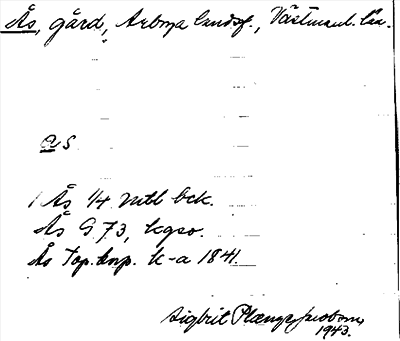 Ås, gård, Arboga landsf., Västmanl. län.
ås
1 Ås 1/4 mtl bck.
Ås G. 73, kgso.
Ås Top.knp. k-a 1841.
Sigbrit Plænge Jacobson
1943.